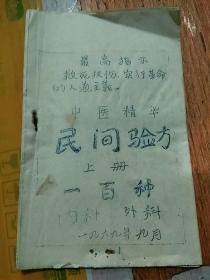 最高指示
救死扶伤，实行革命
的人道主義。
中医精华
民间验方
上册
一百种
内科 外科
一九六九年九月